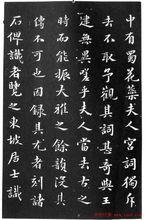 中有蜀花蕊夫人宮詞獨斥
去不取予觀其詞甚奇與王
建無異嗟乎夫人當去古之
時而能振大雅之餘韻沒其
傳不可也因錄其尤者刻諸
石俾識者覽之東坡居士識